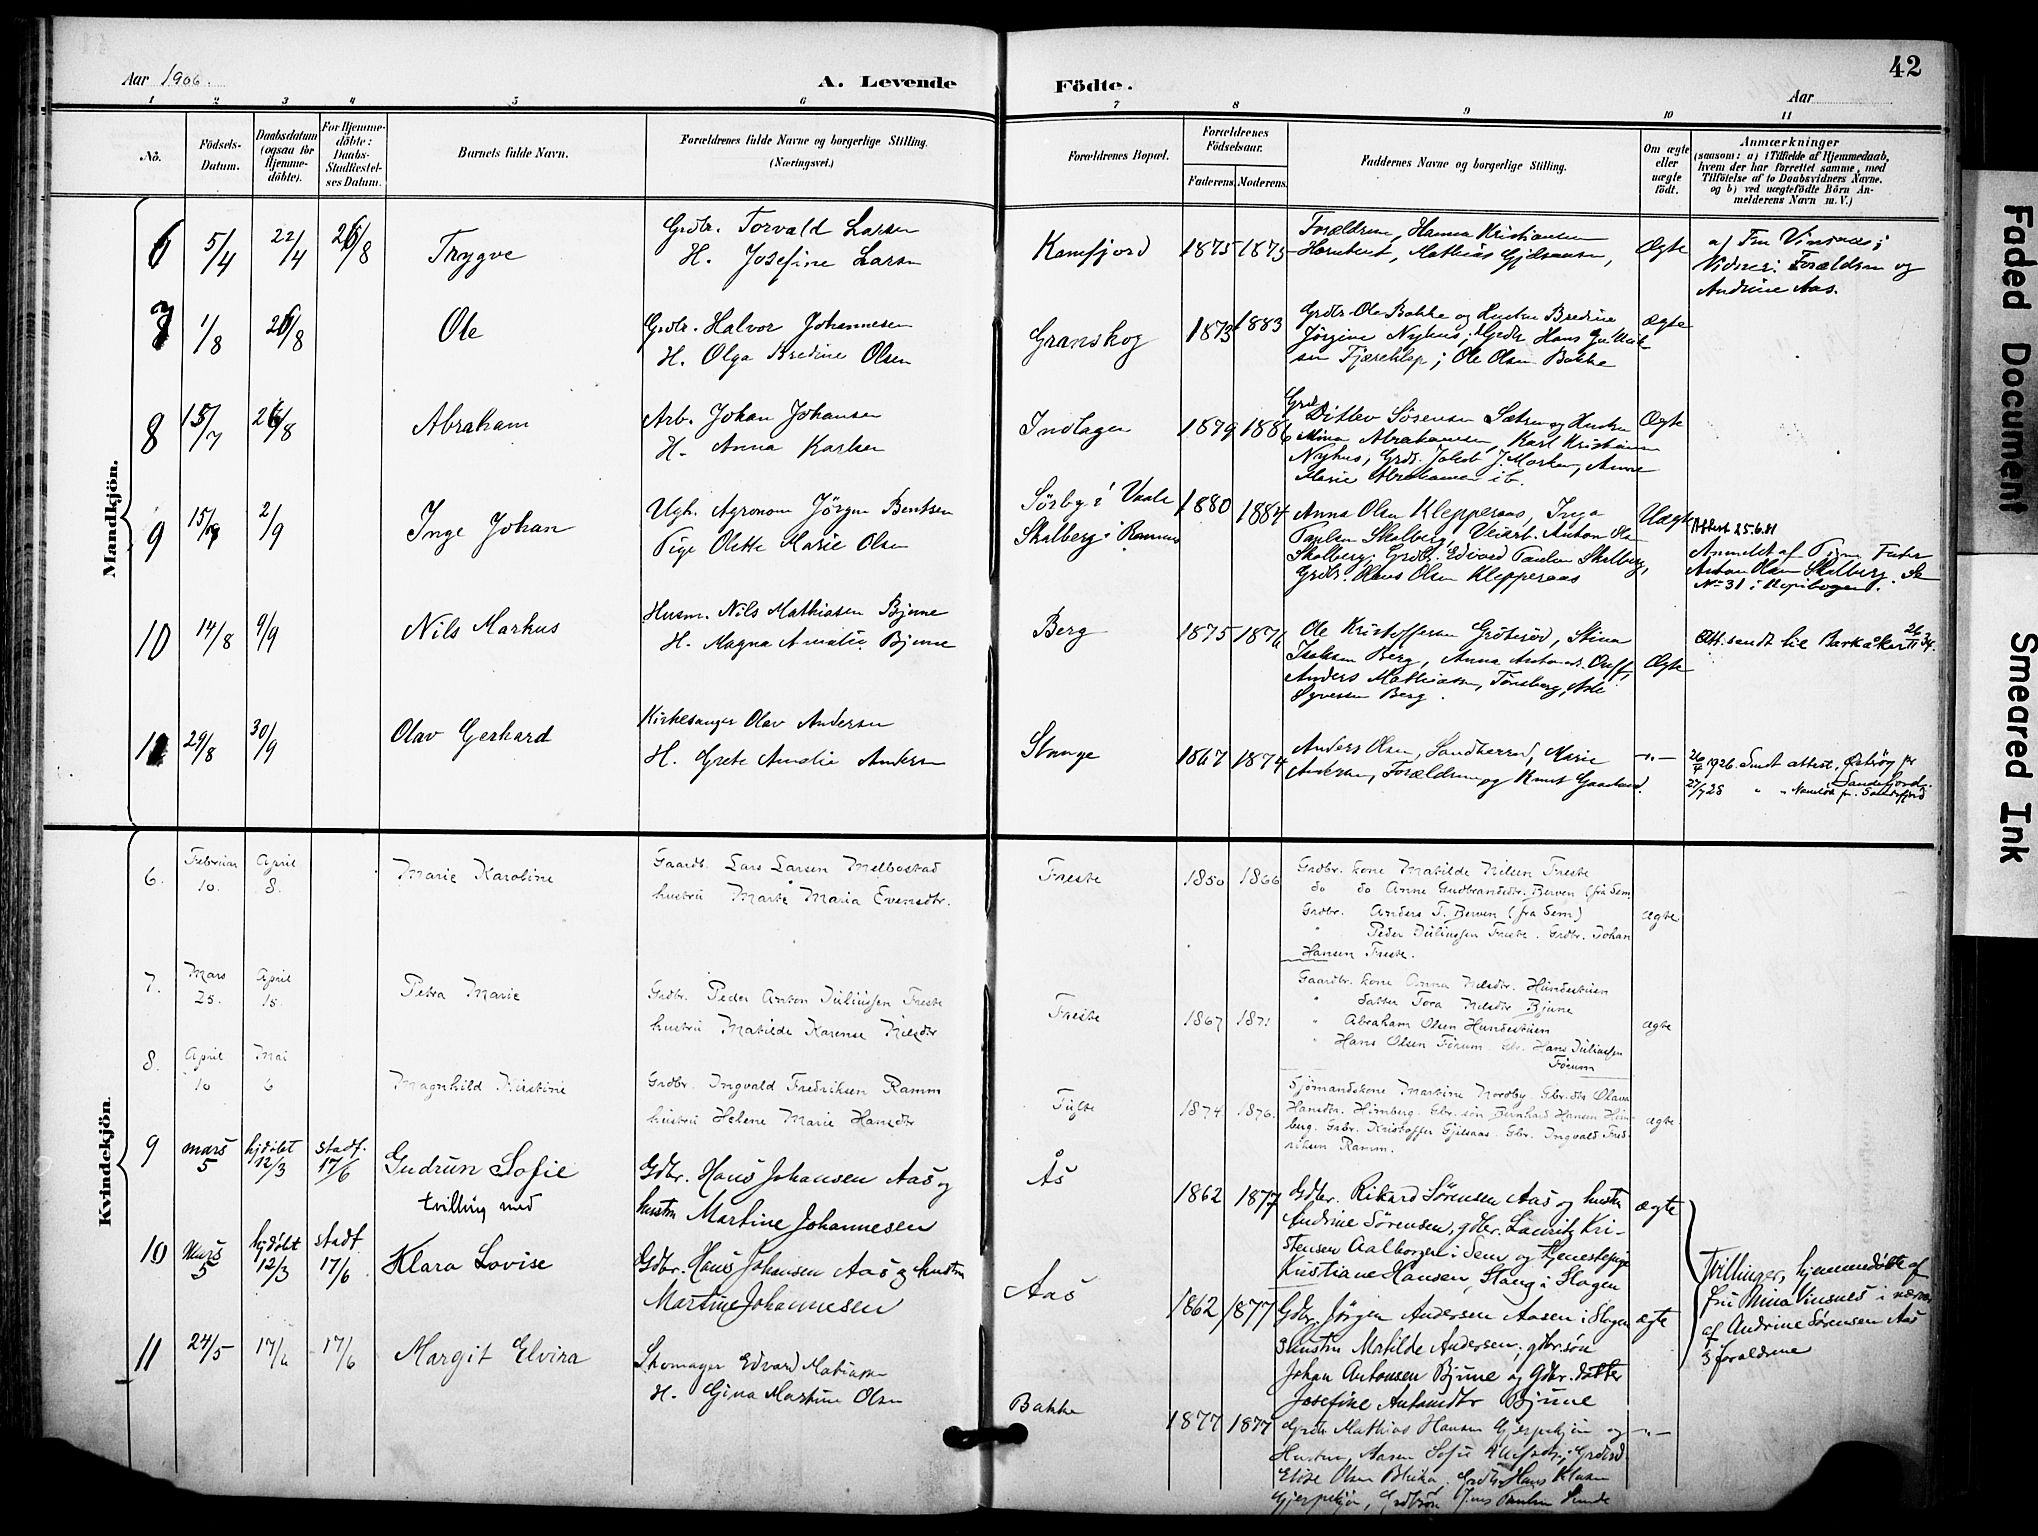 42
Aar 1906.
A. Levende Födte.
Aar
1 2 3 4 5 6 7 8 9 10 11
No.
Födsels-Datum.
Daabsdatum (ogsaa for Hjemme-döbte).
For Hjemme-döbte: Daabs-Stadfæstel-ses Datum.
Barnets fulde Navn.
Forældrenes fulde Navne og borgerlige Stilling. (Næringsvei.)
Forældrenes Bopæl.
Forældrenes Födselsaar.
Faderens. Moderens.
Faddernes Navne og borgerlige Stilling.
Om ægte eller uægte födt.
Anmærkninger
(saasom: a) i Tilfælde af Hjemmedaab,
hvem der har forrettet samme, med
Tilföielse af to Daabsvidners Navne.
og b) ved uægtefödte Börn An-
melderens Navn m. V.)
Mandkjön.
6 5/4 22/4 26/8 Trygve
Grdbr. Torvald Larsen
H. Josefine Larsen
Kamfjord 1875 1875
Forældrene, Hanna Kristiansen
Mathias Gjelsaasen,
Ægte
a) Fru Vinsnes;
Vidner: Forældrene og
Andrine Aas.
7 1/8 26/8 Ole
Grdbr. Halvor Johannesen
H. Olga Bredine Olsen
Granskog 1873 1883
Grdbr. Ole Bakke og Hustru Bredine
Jørgine Nyhus; Grdbr. Hans
Ole Olsen Bakke
Ægte
8 15/7 26/8 Abraham
Arb. Johan Johansen
H. Anna Karlsen
Indlagen 1879 1886
Grdbr. Ditlev Sørensen Sætren og Hustru
Mina Abrahamsen, Karl Kristian
Nyhus, Grdbr. Jakob J. Marken, Anne
Marie Abrahamsen
Ægte
9 15/7 2/9 Inge Johan
Ugh. Agronom Jörgen Bentsen
Pige Olette Marie Olsen
Sørby i Vaale
Skalberg i Ramnes
1880 1884
Anna Olsen Klepperaas, Inga
Paulsen Skalberg, Veiarb. Anton Ols
Skalberg; Grdbr. Edvard Paulsen Skalberg,
Grdbr. Olaus Olsen Klepperaas
Uægte
Attest 25.6.81
Anmeldt af Pigens Fader
Anton Olsen Skalberg. Se
No 31 i Kopibogen.
10 14/8 9/9 Nils Markus
Husm. Nils Mathiasen Bjune
H. Magna Amalie Bjune
Berg 1875 1876
Ole Kristoffersen Grötteröd, Stina
Isaksen Berg, Anna
Anders Mathiassen, Tönsberg,
Syversen Berg.
Ægte
Att. sendt til Barkåker 26/11 34.
11 29/8 30/9 Olav Gerhard
Kirkesanger Olav Andersen
H. Grete Amalie Andersen
Stange 1867 1874
Anders Olsen, Sandherred, Marie
Andersen, Forældrene og Knut Gaasland.
-"-
26/4 1926. Sendt attest, Østrøy pr Sandefjord.
27/9 28 " " pr. Sandefjord
Kvindekjön.
6. Februar 10. April 8. Marie Karoline
Gaardb. Lars Larsen Melbostad
hustru Marte Maria Evensdtr.
Freste 1850 1866
Grdbr. kone Matilde Nilsen Freste
do do Anne Gudbrandsdtr. Berven (fra Sem)
Grdbr. Anders T. Berven (fra Sem)
" Peder Juliussen Freste. Grdbr. Johan
Hansen Freste.
ægte
7. Mars 25. April 15. Petra Marie
Grdbr. Peder Anton Juliussen Freste
hustru Matilde Karense Nilsdtr
Freste 1867 1871
Gaardbr. kone Anna Nilsdtr. Hundestuen
" datter Tora Nilsdtr Bjune
" Abraham Olsen Hundestuen
" Hans Olsen Förum. Gbr. Hans Juliussen
Förum
ægte
8. April 10 Mai 6 Magnhild Kirstine
Grdbr. Ingvald Fredriksen Ramm
hustru Helene Marie Hansdtr
Tufte 1874 1876.
Sjömandskone Martine Nordby. Gbr. dtr Olava
Hansdtr. Himberg. Gbr. sön Bernhard Hansen Him-
berg. Grbr. Kristoffer Gjelsaas. Gbr. Ingvald Fred-
riksen Ramm.
ægte
9 mars 5 hjdöbt 12/3 stadf. 17/6 Gudrun Sofie
tvilling med
Gdbr. Hans Johansen Aas og
hustru Martine Johannesen
Ås 1862 1877
Gdbr. Rikard Sørensen Aas og hustru
Andrine Sørensen, gdbr. Lauritz Kri-
stensen Aalborgen i Sem og tjenestepige
Kristiane Hansen, Stang i Slagen
ægte
10 Mars 5 hjdöbt 12/3 stadf. 17/6 Klara Lovise
Gdbr. Hans Johansen Aas og hustru
Martine Johannesen
Aas 1862 1877
Gdbr. Jørgen Andersen Aasen i Slagen
og hustru Matilde Andersen; gdbr. sön
Johan Antonsen Bjune og Gdbr. datter
Josefine Antonsdtr Bjune
ægte
Tvillinger, hjemmedöbte af
fru Mina Vinsnes i nærv.
af Andrine Sørensen Aas
og foraldrene
11 24/5 17/6 17/6 Margit Elvira
Skomager Edvard Matiassen
H. Gina Martine Olsen
Bakke 1877 1877
Grdbr Mathias Hansen Gjerpekjøn og
Hustru, Aasen Sofie
Elise Olsen Bakke, Grdbr. Hans Klausen
Gjerpekjøn, Grdbrsön Jens Paulsen Linde
-"-
Faded Document
Smeared Ink